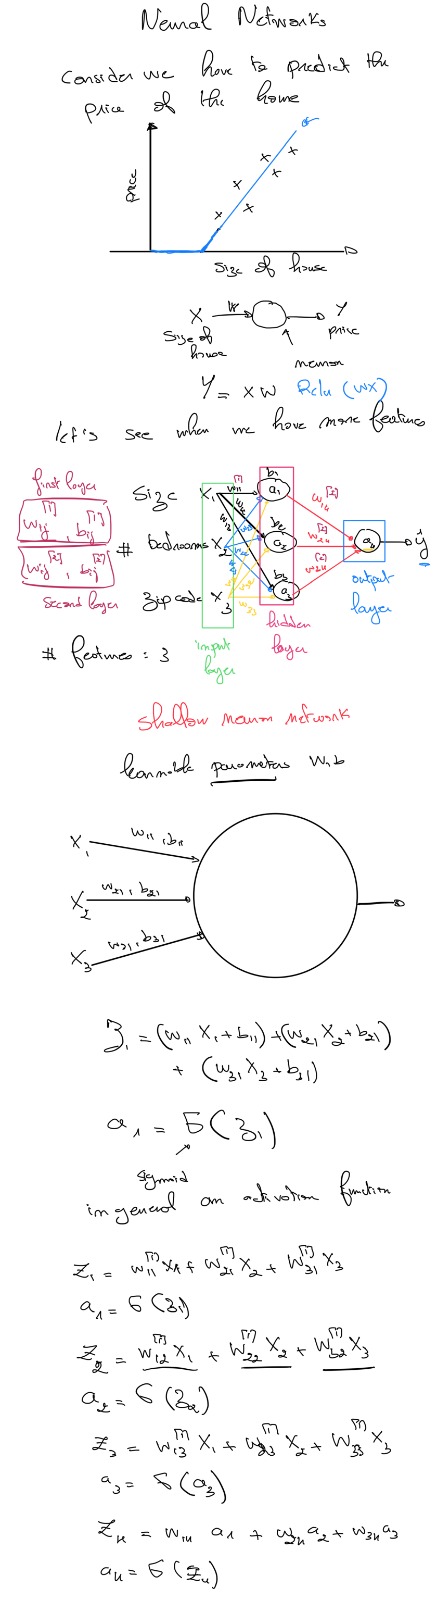 Neural Networks
Consider we have to predict the
price of the home
price
size of house
X w Y
size of house
price
neuron
Y = XW Relu (WX)
let's see when we have more features
first layer
w_ij^[1], b_ij^[1]
w_ij^[2], b_ij^[2]
second layer
size X_1 w_11^[1] b_1 a_1 w_14^[2]
# bedrooms X_2 b_2 a_2 w_24^[2] a_4 ŷ
zip code X_3 w_33 b_3 a_3 w_34^[2]
output layer
hidden layer
input layer
# features : 3
Shallow neuron network
learnable parameters W, b
X_1 w_11, b_11
X_2 w_21, b_21
X_3 w_31, b_31
z_1 = (w_11 X_1 + b_11) + (w_21 X_2 + b_21)
+ (w_31 X_3 + b_31)
a_1 = σ(z_1)
sigmoid
in general an activation function
z_1 = w_11^[1] X_1 + w_21^[1] X_2 + w_31^[1] X_3
a_1 = σ(z_1)
z_2 = w_12^[1] X_1 + w_22^[1] X_2 + w_32^[1] X_3
a_2 = σ(z_2)
z_3 = w_13^[1] X_1 + w_23^[1] X_2 + w_33^[1] X_3
a_3 = σ(a_3)
z_4 = w_14 a_1 + w_24 a_2 + w_34 a_3
a_4 = σ(z_4)